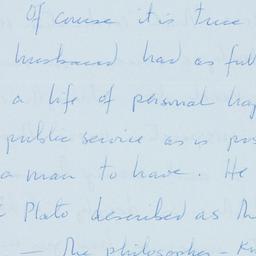 Of course it is true
husband had as full
a life of personal hap
public service as is pos
a man to have. He
Plato described as th
– the philosopher – K